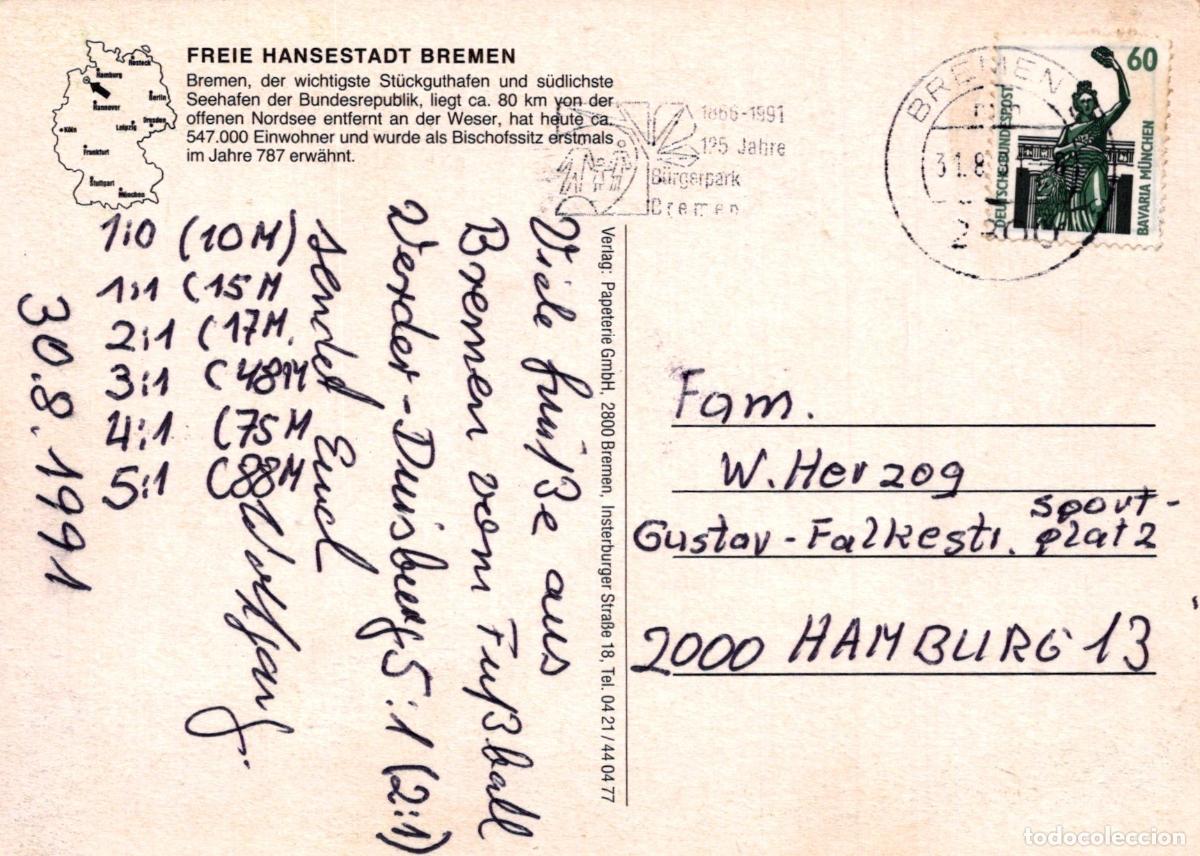 FREIE HANSESTADT BREMEN
Bremen, der wichtigste Stückguthafen und südlichste
Seehafen der Bundesrepublik, liegt ca. 80 km von der
offenen Nordsee entfernt an der Weser, hat heute ca.
547.000 Einwohner und wurde als Bischofssitz erstmals
im Jahre 787 erwähnt.
Rostock
Hamburg
Hannover
Berlin
Köln
Leipzig
Dresden
Frankfurt
Stuttgart
München
1866-1991
125 Jahre
Bürgerpark
Bremen
BREMEN
31.8
60
DEUTSCHE BUNDESPOST
BAVARIA MÜNCHEN
Viele Grüße aus
Bremen vom Fußball
Werder-Duisburg 5:1 (2:1)
sendet Euch
Wolfgang.
1:0 (10M)
1:1 (15M
2:1 (17M.
3:1 (48M
4:1 (75M
5:1 (88M
30.8.1991
Verlag: Papeterie GmbH, 2800 Bremen, Insterburger Straße 18, Tel. 04 21 / 44 04 77
Fam.
W. Herzog
Gustav-Falkestr. sport-
platz
2000 HAMBURG 13
todocoleccion